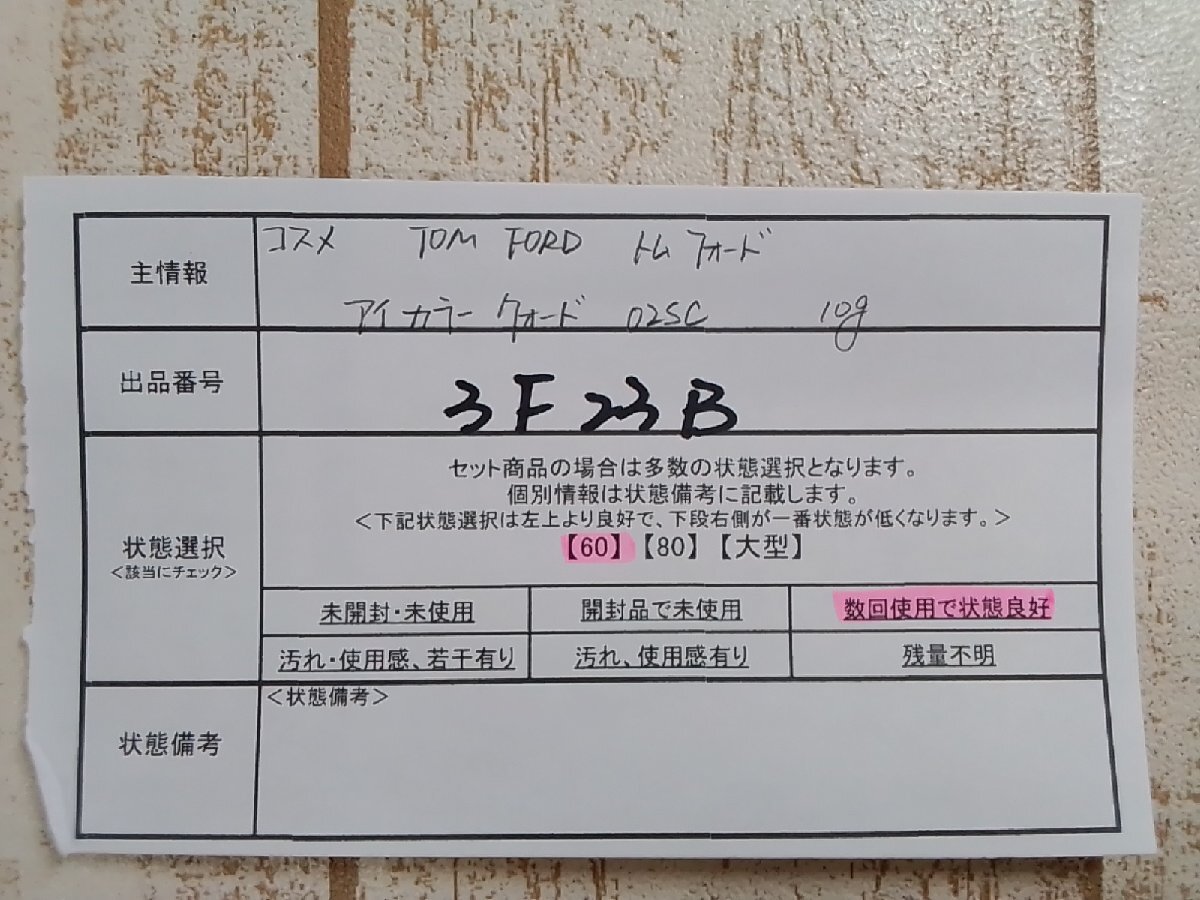 主情報
コスメ TOM FORD トムフォード
アイカラークォード 02SC 10g
出品番号
3F23B
状態選択
<該当にチェック>
セット商品の場合は多数の状態選択となります。
個別情報は状態備考に記載します。
<下記状態選択は左上より良好で、下段右側が一番状態が低くなります。>
【60】【80】【大型】
未開封・未使用 開封品で未使用 数回使用で状態良好
汚れ・使用感、若干有り 汚れ、使用感有り 残量不明
状態備考
<状態備考>